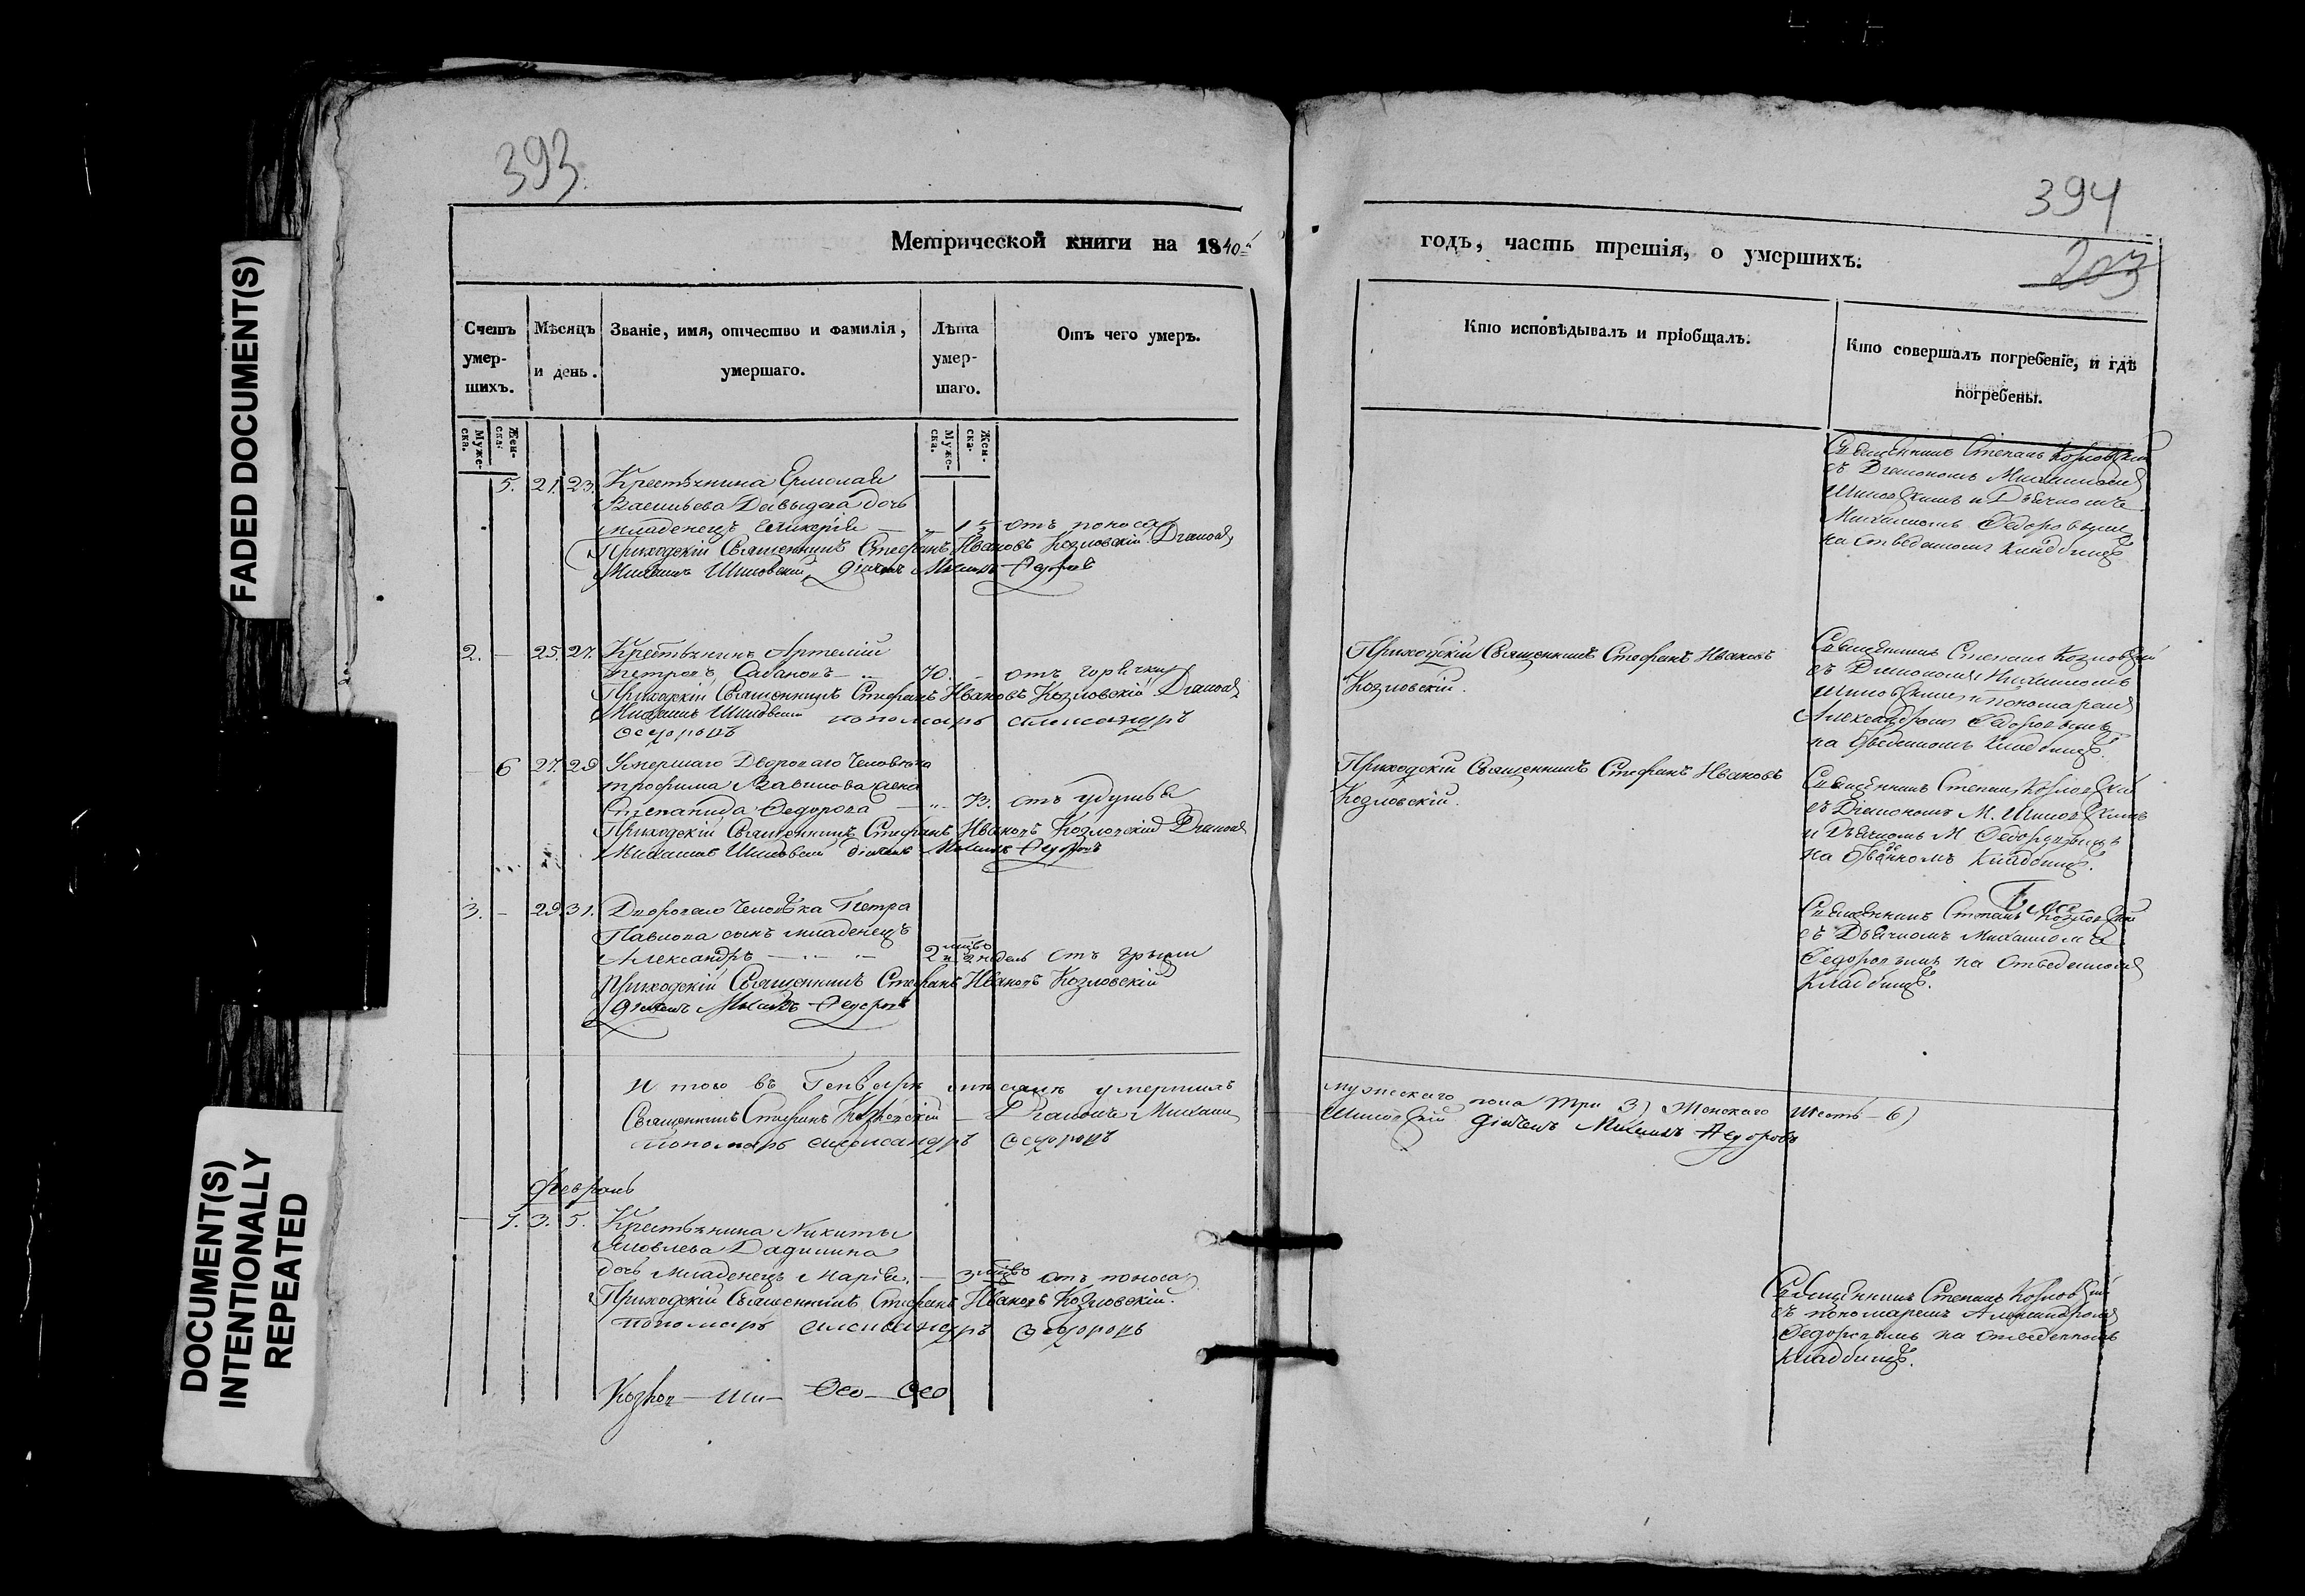 FADED DOCUMENT(S)
DOCUMENT(S)
INTENTIONALLY
REPEATED
393
Метрической книги на 1840
Счетъ умер-шихъ.
Мѣсяцъ и день.
Званіе, имя, отчество и фамилія, умершаго.
Лѣта умер-шаго.
Отъ чего умеръ.
Муже-ска.
Жен-ска.
Муже-ска.
Жен-ска.
5. 21. 23. Крестьянина Ермолая
Васильева Давыдова дочь
младенецъ Гликерія — 1 отъ поноса
Приходскій Священникъ Стефанъ Ивановъ Козловскій Диаконъ
Михаилъ Шиловский дьячекъ Михаилъ Федоровъ
2. — 25. 27. Крестьянинъ Артемій
Петровъ 70. отъ горячки
Приходскій Священникъ Стефанъ Ивановъ Козловскій Диаконъ
Михаилъ Шиловский пономарь Александръ
Федоровъ
6 27. 29 Умершаго Двороваго Человека
Трофима Савинова жена
Степанида Федорова — 73. отъ удушья
Приходскій Священникъ Стефанъ Ивановъ Козловский Диаконъ
Михаилъ Шиловский дьячекъ Михаилъ Федоровъ
3. — 29. 31. Двороваго Человѣка Петра
Павлова сынъ младенецъ
Александръ — 2 отъ грыжи
Приходскій Священникъ Стефанъ Ивановъ Козловскій
дьячекъ Михаилъ Федоровъ
И того въ Генварѣ умершихъ
Священникъ Стефанъ Козловскій — Диаконъ Михаил
пономарь Александръ Федоровъ
Февраль
7. 3. 5. Крестьянина Никиты
Яковлева
дочь младенецъ Марія. — 3 отъ поноса
Приходскій Священникъ Стефанъ Ивановъ Козловскій.
пономарь Александръ Федоровъ
Козлов — Ши — Фео — Фео
394
203
годъ, часть третія, о умершихъ.
Кто исповѣдывалъ и пріобщалъ.
Кто совершалъ погребеніе, и гдѣ погребены.
Священникъ Степанъ Козловский
съ Диакономъ Михаиломъ
Шиловскимъ и Дьячкомъ
Михаиломъ Федоровымъ
на отведенномъ кладбищѣ
Приходскій Священникъ Стефанъ Ивановъ
Козловскій.
Священникъ Степанъ Козловский
съ Диакономъ Михаиломъ
Шиловскимъ и пономаремъ
Александромъ Федоровымъ
на отведенномъ кладбищѣ.
Приходскій Священникъ Стефанъ Ивановъ
Козловскій.
Священникъ Степанъ Козловский
съ Діакономъ М. Шиловскимъ
и Дьячкомъ М. Федоровымъ
на отведенномъ кладбищѣ.
Священникъ Степанъ Козловский
съ Дьячкомъ Михаиломъ
Федоровымъ на отведенномъ
кладбищѣ.
мужескаго пола три 3) Женскаго шесть — 6)
Шиловский дьячекъ Михаилъ Федоровъ
Священникъ Степанъ Козловский
съ пономаремъ Александромъ
Федоровымъ на отведенномъ
кладбищѣ.